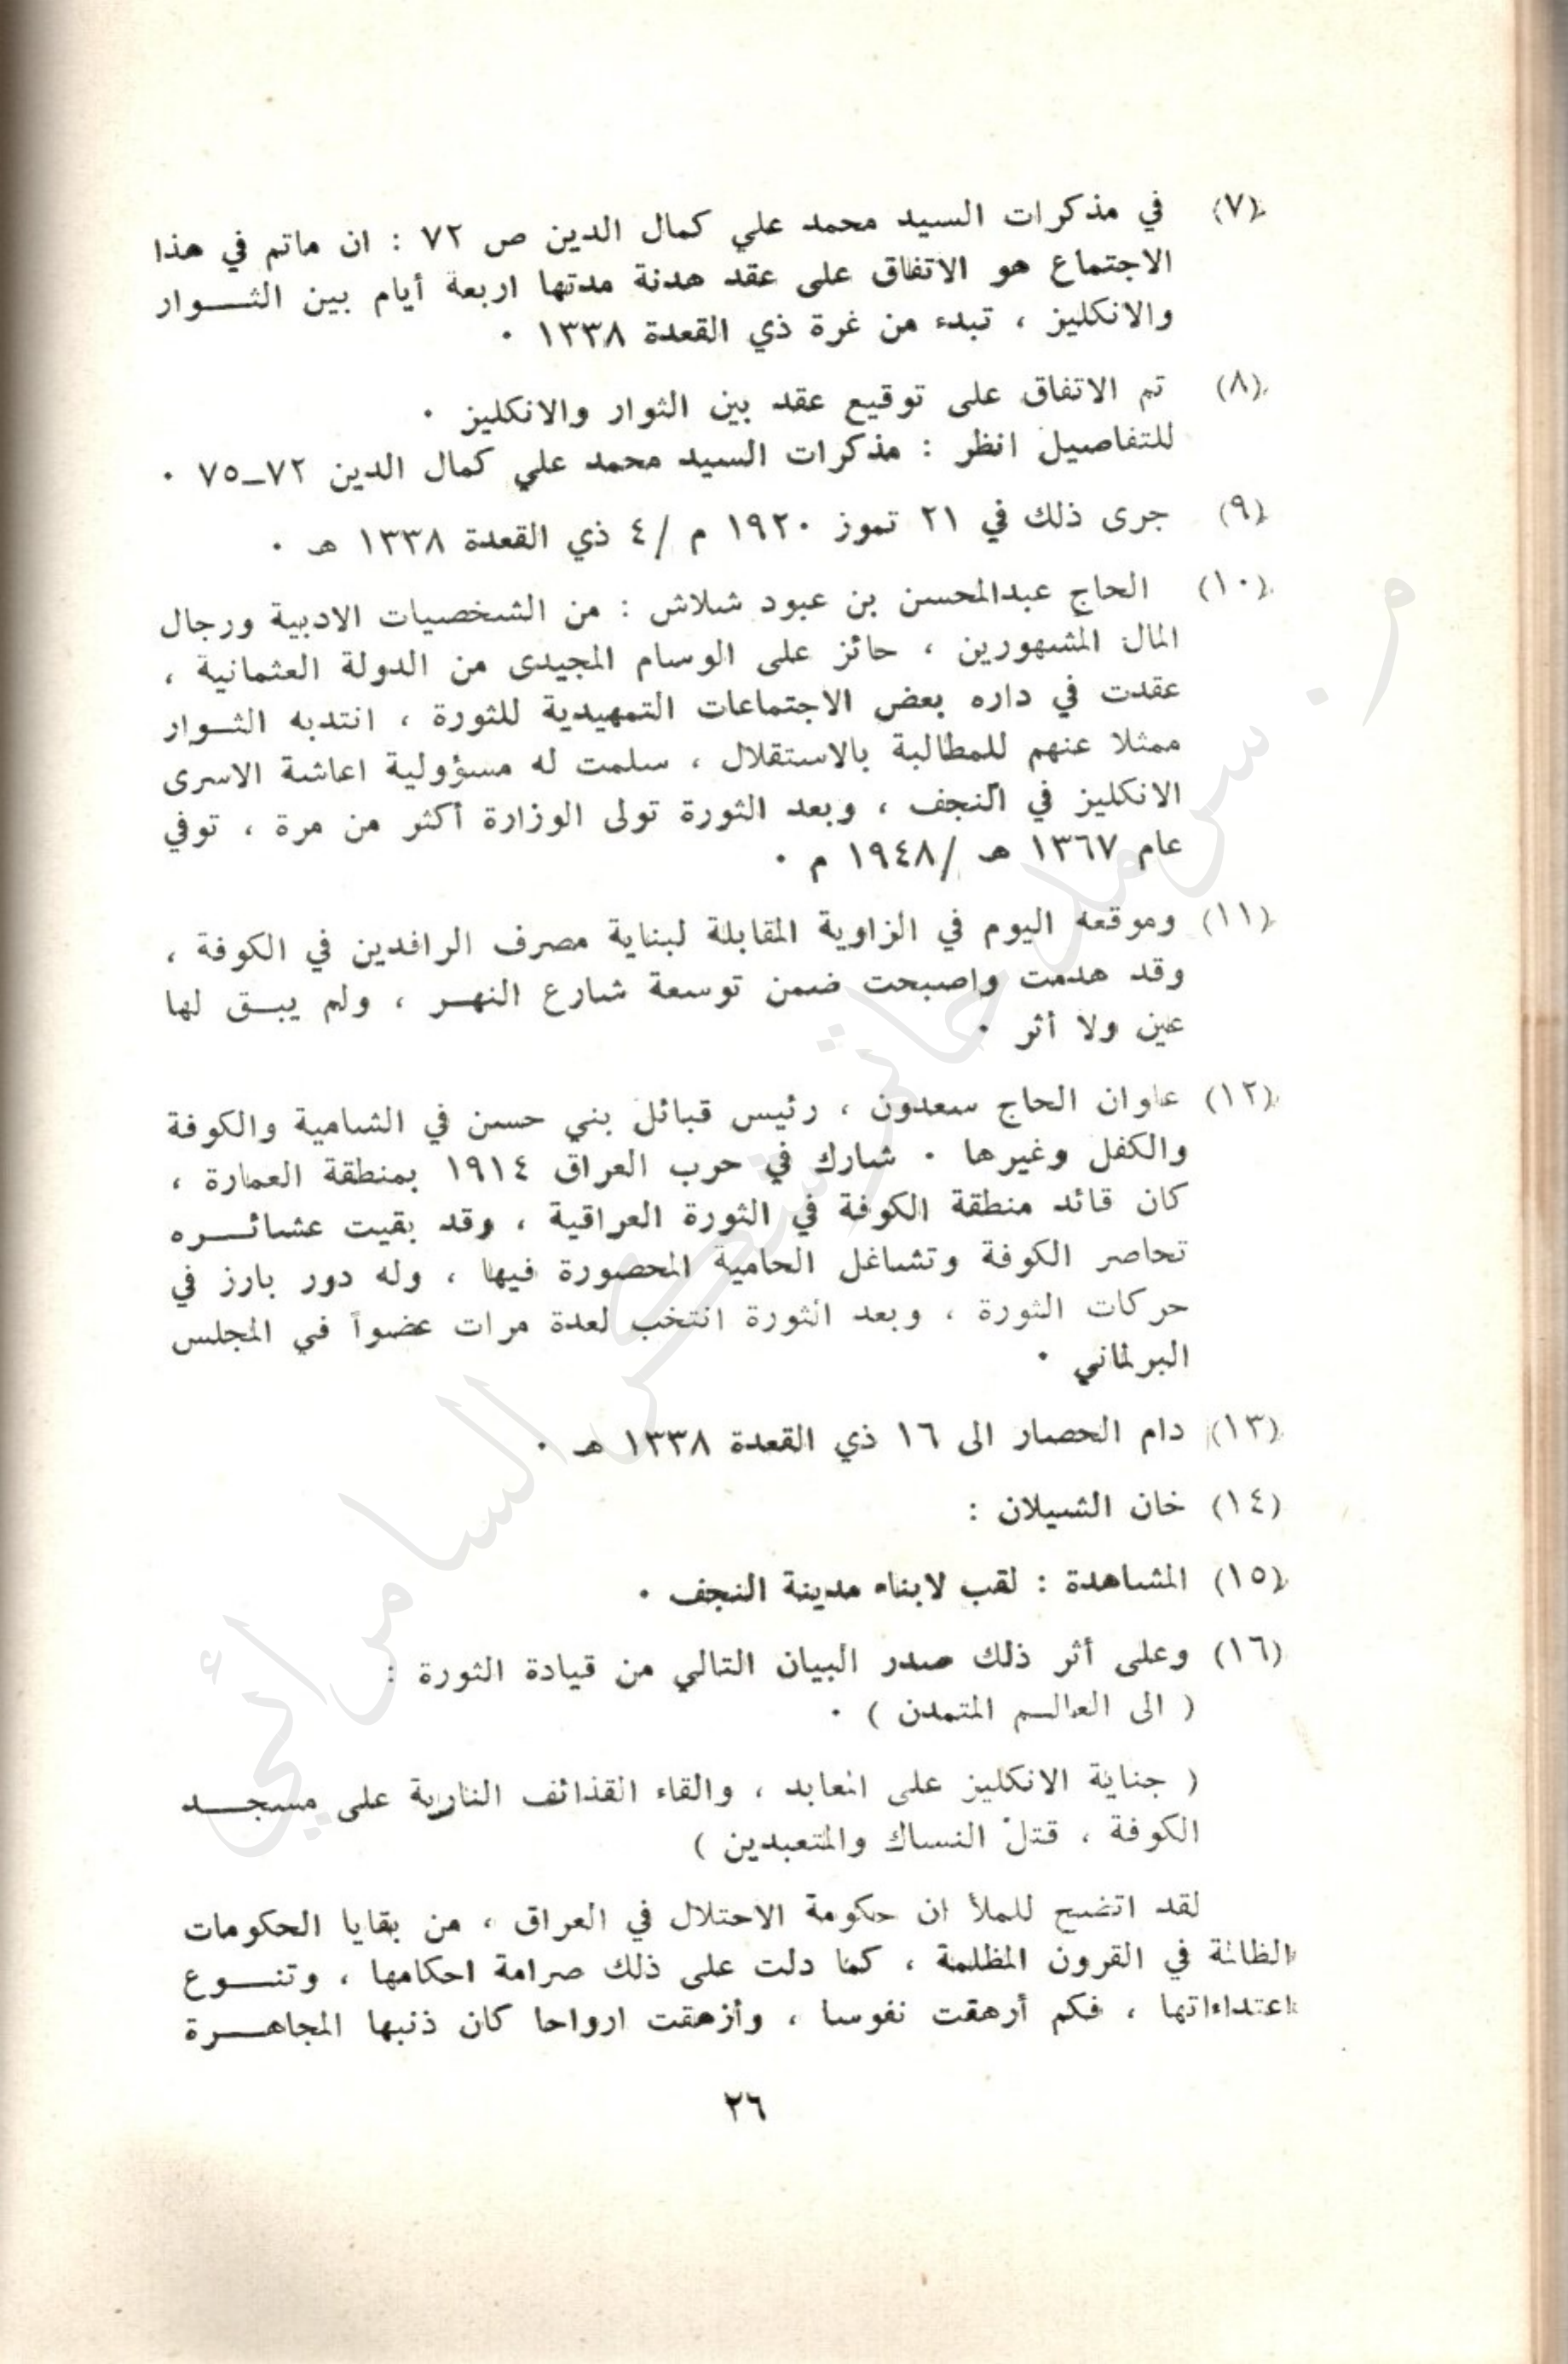 (٧) في مذكرات السيد محمد علي كمال الدين ص ٧٢ : ان ماتم في هذا
الاجتماع هو الاتفاق على عقد هدنة مدتها اربعة أيام بين الثـــوار
والانكليز ، تبدء من غرة ذي القعدة ١٣٣٨ ٠
(٨) تم الاتفاق على توقيع عقد بين الثوار والانكليز ٠
للتفاصيل انظر : مذكرات السيد محمد علي كمال الدين ٧٢ــ٧٥ ٠
(٩) جرى ذلك في ٢١ تموز ١٩٢٠ م /٤ ذي القعدة ١٣٣٨ هـ ٠
(١٠) الحاج عبدالمحسن بن عبود شلاش : من الشخصيات الادبية ورجال
المال المشهورين ، حائز على الوسام المجيدى من الدولة العثمانية ،
عقدت في داره بعض الاجتماعات التمهيدية للثورة ، انتدبه الثــوار
ممثلا عنهم للمطالبة بالاستقلال ، سلمت له مسؤولية اعاشة الاسرى
الانكليز في النجف ، وبعد الثورة تولى الوزارة أكثر من مرة ، توفي
عام ١٣٦٧ هـ /١٩٤٨ م ٠
(١١) وموقعه اليوم في الزاوية المقابلة لبناية مصرف الرافدين في الكوفة ،
وقد هدمت واصبحت ضمن توسعة شارع النهـر ، ولم يبـق لها
عين ولا أثر ٠
(١٢) علوان الحاج سعدون ، رئيس قبائل بني حسن في الشامية والكوفة
والكفل وغيرها ٠ شارك في حرب العراق ١٩١٤ بمنطقة العمارة ،
كان قائد منطقة الكوفة في الثورة العراقية ، وقد بقيت عشائـــره
تحاصر الكوفة وتشاغل الحامية المحصورة فيها ، وله دور بارز في
حركات الثورة ، وبعد الثورة انتخب لعدة مرات عضواً في المجلس
البرلماني ٠
(١٣) دام الحصار الى ١٦ ذي القعدة ١٣٣٨ هـ ٠
(١٤) خان الشيلان :
(١٥) المشاهدة : لقب لابناء مدينة النجف ٠
(١٦) وعلى أثر ذلك صدر البيان التالي من قيادة الثورة :
( الى العالـم المتمدن ) ٠
( جناية الانكليز على المعابد ، والقاء القذائف النارية على مسجـــد
الكوفة ، قتل النساك والمتعبدين )
لقد اتضح للملأ ان حكومة الاحتلال في العراق ، من بقايا الحكومات
الظالمة في القرون المظلمة ، كما دلت على ذلك صرامة احكامها ، وتنـــوع
اعتداءاتها ، فكم أرهقت نفوسا ، وأزهقت ارواحا كان ذنبها المجاهـــرة
٢٦